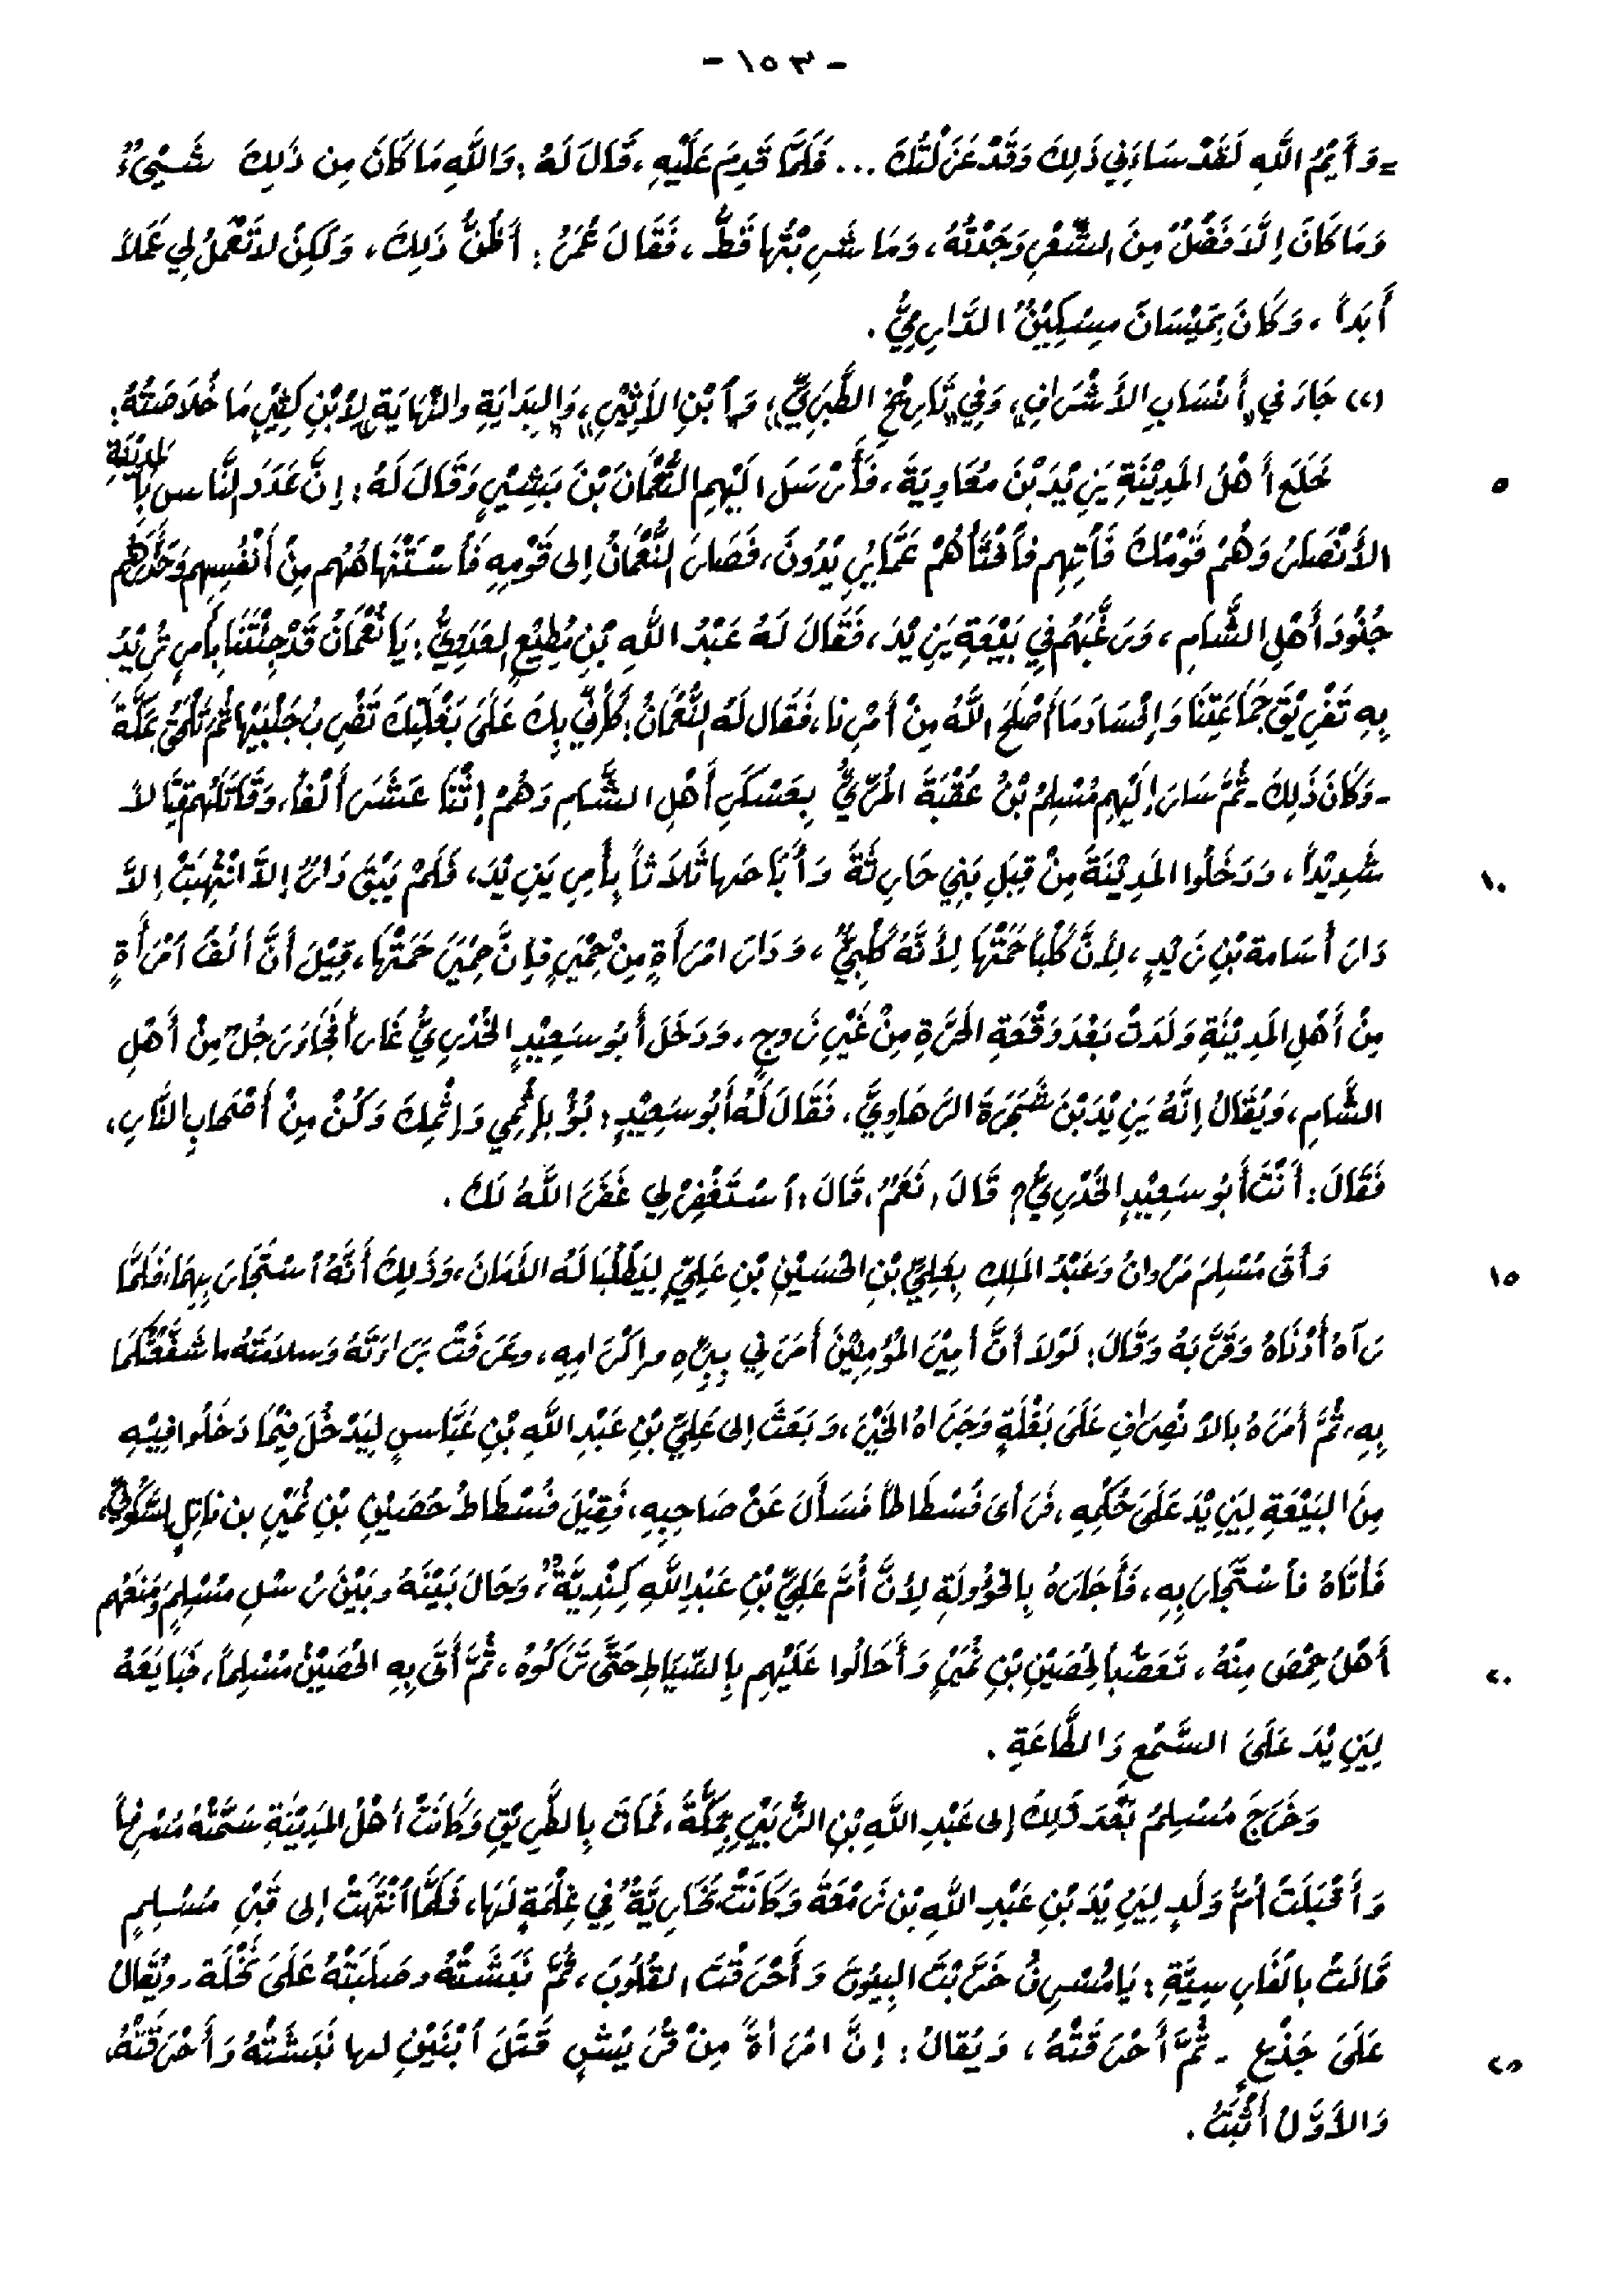 - ١٥٣ -
= وَأَيْمُ اللَّهِ لَقَدْ سَاءَنِي ذَلِكَ وَقَدْ عَزَلْتُكَ ... فَلَمَّا قَدِمَ عَلَيْهِ، قَالَ لَهُ: وَاللَّهِ مَا كَانَ مِن ذَلِكَ شَيْئٌ
وَمَا كَانَ إِلَّا فَضْلٌ مِنَ الشِّعْرِ وَجَدْتُهُ، وَمَا شَرِبْتُها قَطُّ، فَقَالَ عُمَرُ: أَظُنُّ ذَلِكَ، وَلَكِنْ لاَ تَعْمَلُ لِي عَمَلاً
أَبَداً، وَكَانَ بِمَيْسَانَ مِسْكِيْنٌ الدَّارِمِيُّ.
(٢) جَاءَ فِي "أَنْسَابِ الأَشْرَافِ" وَفِي "تَارِيْخِ الطَّبَرِيِّ" وَ"ٱبْنِ الأَثِيْرِ" وَ"البِدَايَةِ والنِّهَايَةِ" لِابْنِ كَثِيْرٍ مَا خُلاَصَتُهُ:
٥ خَلَعَ أَهْلُ المَدِيْنَةِ يَزِيْدَ بْنَ مُعَاوِيَةَ، فَأَرْسَلَ إِلَيْهِم النُّعْمَانَ بْنَ بَشِيْرٍ وَقَالَ لَهُ: إِنَّ عَدَدَ النَّاسِ بِالْمَدِيْنَةِ
الأَنْصَارُ وَهُمْ قَوْمُكَ فَأْتِهِم فٱفْثَأْهُمْ عَمَّا يُرِيْدُونَ، فَصَارَ النُّعْمَانُ إِلى قَوْمِهِ فَٱسْتَنْهَاهُمُ مِنْ أَنْفُسِهِم وَحَذَّرَهُم
جُنُودَ أَهْلِ الشَّامِ، وَرَغَّبَهُم فِي بَيْعَةِ يَزِيْدَ، فَقَالَ لَهُ عَبْدُ اللهِ بْنِ مُطِيْعٍ العَدَوِيُّ: يَا نُعْمَانُ قَدْ جِئْتَنَا بِأَمْرٍ تُرِيْدُ
بِهِ تَفْرِيْقَ جَمَاعَتِنَا وَإِفْسَادَ مَا أَصْلَحَ اللَّهُ مِنْ أَمْرِنا، فَقَالَ لَهُ النُّعْمَانُ: كَأَنِّي بِكَ عَلَى بَغْلَتِكَ تَضْرِبُ جَنْبَيْها ثُمَّ تَلْحَقُ بِمَكَّةَ
- وَكَانَ ذَلِكَ - ثُمَّ سَارَ إِلَيْهِم مُسْلِمُ بْنُ عُقْبَةَ المُرِّيُّ بِعَسْكَرِ أَهْلِ الشَّامِ وَهُمْ إِثْنَا عَشَرَ أَلْفاً، وَقَاتَلَهُم قِتَالاً
١٠ شَدِيْداً، وَدَخَلُوا المَدِيْنَةَ مِنْ قِبَلِ بَنِي حَارِثَةَ وَأَبَاحَها ثَلاَثاً بِأَمْرِ يَزِيْدَ، فَلَمْ يَبْقَ دَارٌ إِلاَّ انْتُهِبَتْ إِلاَّ
دَارَ أُسَامة بْنِ زَيْدٍ، لِأَنَّ كَلْباً حَمَتْهَا لِأَنَّهُ كَلْبِيٌّ، وَدَارَ امْرَأَةٍ مِنْ حِمْيَرٍ فإِنَّ حِمْيَرَ حَمَتْهَا، قِيْلَ أَنَّ أَلفَ ٱمْرَأَةٍ
مِنْ أَهْلِ المَدِيْنَةِ وَلَدَتْ بَعْدَ وَقْعَةِ الحَرَّةِ مِنْ غَيْرِ زَوجٍ، وَدَخَلَ أَبُو سَعِيْدٍ الخُدْرِيُّ غَاراً فَجَاءَ رَجُلٌ مِنْ أَهْلِ
الشَّامِ، وَيُقَالُ إِنَّهُ يَزِيْدَ بْنَ شَجَرَةَ الرَّهَاوِيَّ، فَقَالَ لَهُ أَبُو سَعِيْدٍ: بُؤْ بِإِثْمِي وَإِثْمِكَ وَكُنْ مِنْ أَصْحَابِ النَّارِ،
فَقَالَ: أَنْتَ أَبُو سَعِيْدٍ الخُدْرِيُّ؟ قَالَ، نَعَمْ، قَالَ: ٱسْتَغْفِرْ لِي غَفَرَ اللَّهُ لَكَ.
١٥ وَأَتَى مُسْلِمَ مَرْوانُ وَعَبْدُ المَلِكِ بِعَلِيِّ بْنِ الحُسَيْنِ بْنِ عَلِيٍّ لِيَطْلُبَا لَهُ الأَمَانَ، وَذَلِكَ أَنَّهُ ٱسْتَجَارَ بِهِمَا، فَلَمَّا
رَآهُ أَدْنَاهُ وَقَرَّبَهُ وَقَالَ: لَوْلاَ أَنَّ أَمِيْرَ المُؤْمِنِيْنَ أَمَرَنِي بِبِرِّهِ وإِكْرَامِهِ، وعَرَفْتُ بَرَاءَتَهُ وَسلامَتَهُ ما شَفَّعْتُكُمَا
بِهِ، ثُمَّ أَمَرَهُ بالاِنْصِرَافِ عَلَى بَغْلَةٍ وَجَزَاهُ الخَيْرَ، وَبَعَثَ إِلى عَلِيِّ بْنِ عَبْدِ اللَّهِ بْنِ عَبَّاسٍ لِيَدْخُلَ فِيْمَا دَخَلُوا فِيْهِ
مِنَ البَيْعَةِ لِيَزِيْدَ عَلَى حُكْمِهِ، فَرَأَى فُسْطَاطاً فَسَأَلَ عَنْ صَاحِبِهِ، فَقِيْلَ فُسْطَاطُ حُصَيْنِ بْنِ نُمَيْرِ بن نَاتِلٍ السَّكُونِيِّ،
فَأَتَاهُ فٱسْتَجَارَ بِهِ، فَأَجَارَهُ بِالخُؤُولَةِ لِأَنَّ أُمَّ عَلِيِّ بْنِ عَبْدِ اللَّهِ كِنْدِيَّةٌ، وَحَالَ بَيْنَهُ وبَيْنَ رُسُلِ مُسْلِمٍ وَمَنَعَهُم
٢٠ أَهْلُ حِمْصَ مِنْهُ، تَعَصُّباً لِحُصَيْنِ بْنِ نُمَيْرٍ وَأَحَالُوا عَلَيْهِم بِالسِّيَاطِ حَتَّى تَرَكُوهُ، ثُمَّ أَتَى بِهِ الحُصَيْنُ مُسْلِماً، فَبَايَعَهُ
لِيَزِيْدَ عَلَى السَّمْعِ وَالطَّاعَةِ.
وَخَرَجَ مُسْلِمُ بَعْدَ ذَلِكَ إِلى عَبْدِ اللَّهِ بْنِ الزُّبَيْرِ بِمَكَّةَ، فَمَاتَ بِالطَّرِيْقِ وَكَانَتْ أَهْلُ المَدِيْنَةِ سَمَّتْهُ مُسْرِفاً
وَأَقْبَلَتْ أُمُّ وَلَدٍ لِيَزِيْدَ بْنِ عَبْدِ اللهِ بْنِ زَمْعَةَ وَكَانَتْ بُخَارِيَّةٌ فِي غِلْمَةٍ لَهَا، فَلَمَّا ٱنْتَهَتْ إِلى قَبْرِ مُسْلِمٍ
قَالَتْ بِالفَارِسِيَّةِ: يَا مُسْرِفُ خَرَّبْتَ البِيُوتَ وَأَحْرَقْتَ القُلُوبَ، ثُمَّ نَبَشَتْهُ وصَلَبَتْهُ عَلَى نَخْلَة - ويُقَالُ
٢٥ عَلَى جَذْعٍ - ثُمَّ أَحْرَقَتْهُ، وَيُقَالُ: إِنَّ امْرَأَةً مِنْ قُرَيْشٍ قَتَلَ ٱبْنَيْنِ لها نَبَشَتْهُ وَأَحْرَقَتْهُ،
وَالأَوَّلُ أَثْبَتُ.